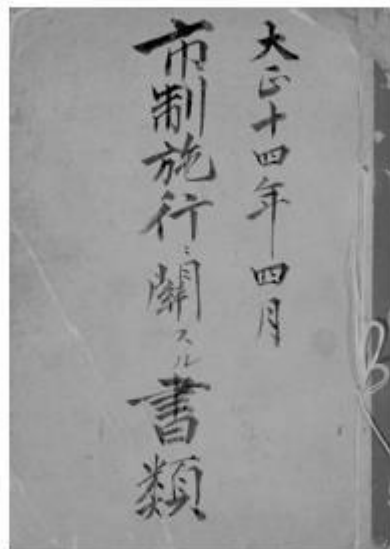 大正十四年四月
市制施行ニ関スル書類